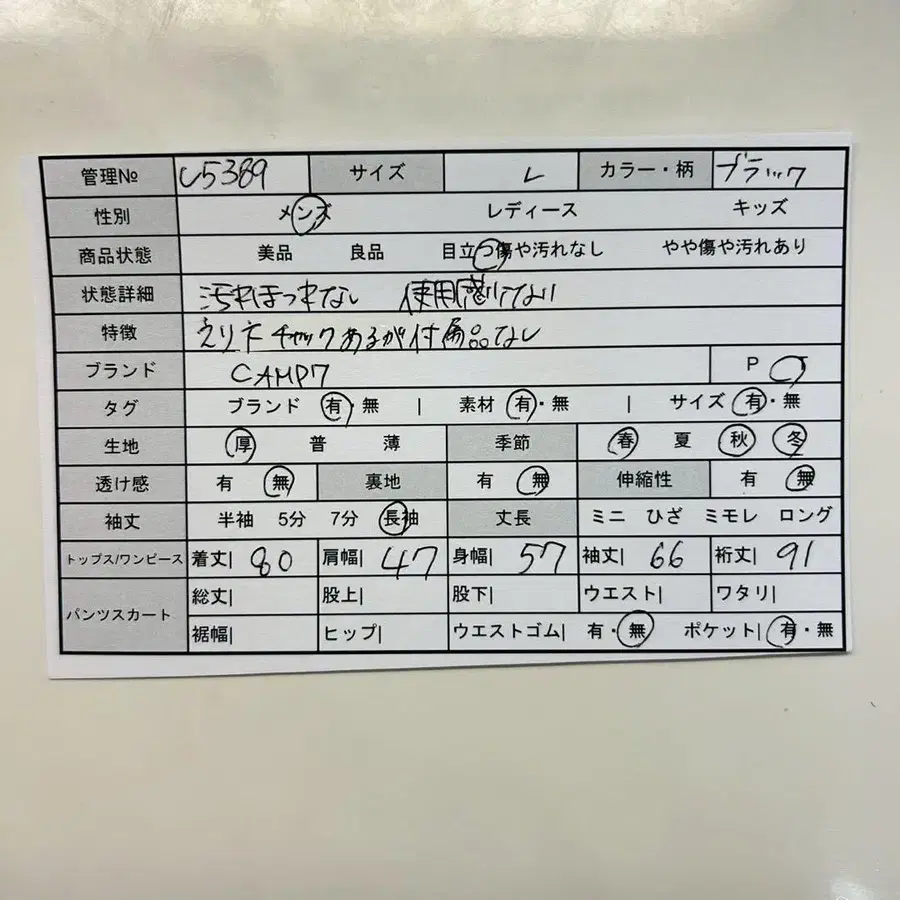 管理№ L5389 サイズ L カラー・柄 ブラック
性別 メンズ レディース キッズ
商品状態 美品 良品 目立つ傷や汚れなし やや傷や汚れあり
状態詳細 汚れほつれなし 使用感少ない
特徴 えり下チャックあるが付属品なし
ブランド CAMP7 P
タグ ブランド 有・無 | 素材 有・無 | サイズ 有・無
生地 厚 普 薄 季節 春 夏 秋 冬
透け感 有 無 裏地 有 無 伸縮性 有 無
袖丈 半袖 5分 7分 長袖 丈長 ミニ ひざ ミモレ ロング
トップス/ワンピース 着丈| 80 肩幅| 47 身幅| 57 袖丈| 66 裄丈| 91
パンツスカート 総丈| 股上| 股下| ウエスト| ワタリ|
裾幅| ヒップ| ウエストゴム| 有・無 ポケット| 有・無